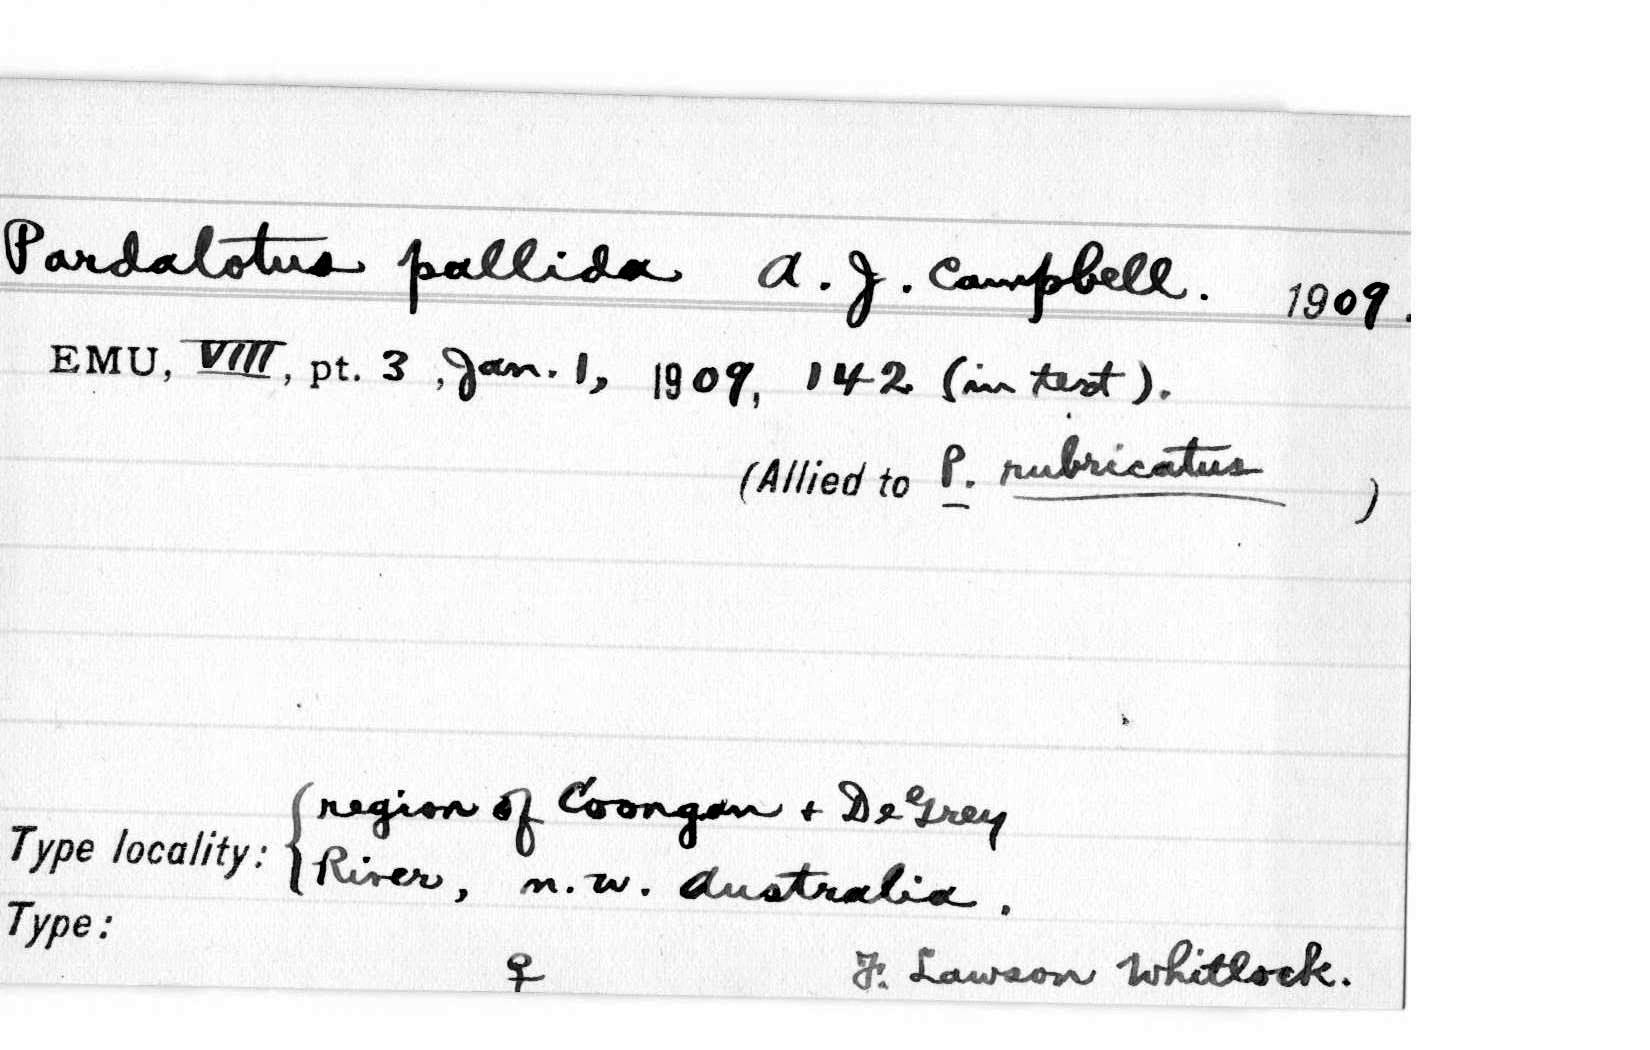 Pardalotus pallida A. J. Campbell. 1909.
EMU, VIII, pt. 3, Jan. 1, 1909, 142 (in text).
(Allied to P. rubricatus )
region of Coongan + DeGrey
Type locality: { River, n.w. Australia.
Type:
♀ F. Lawson Whitlock.